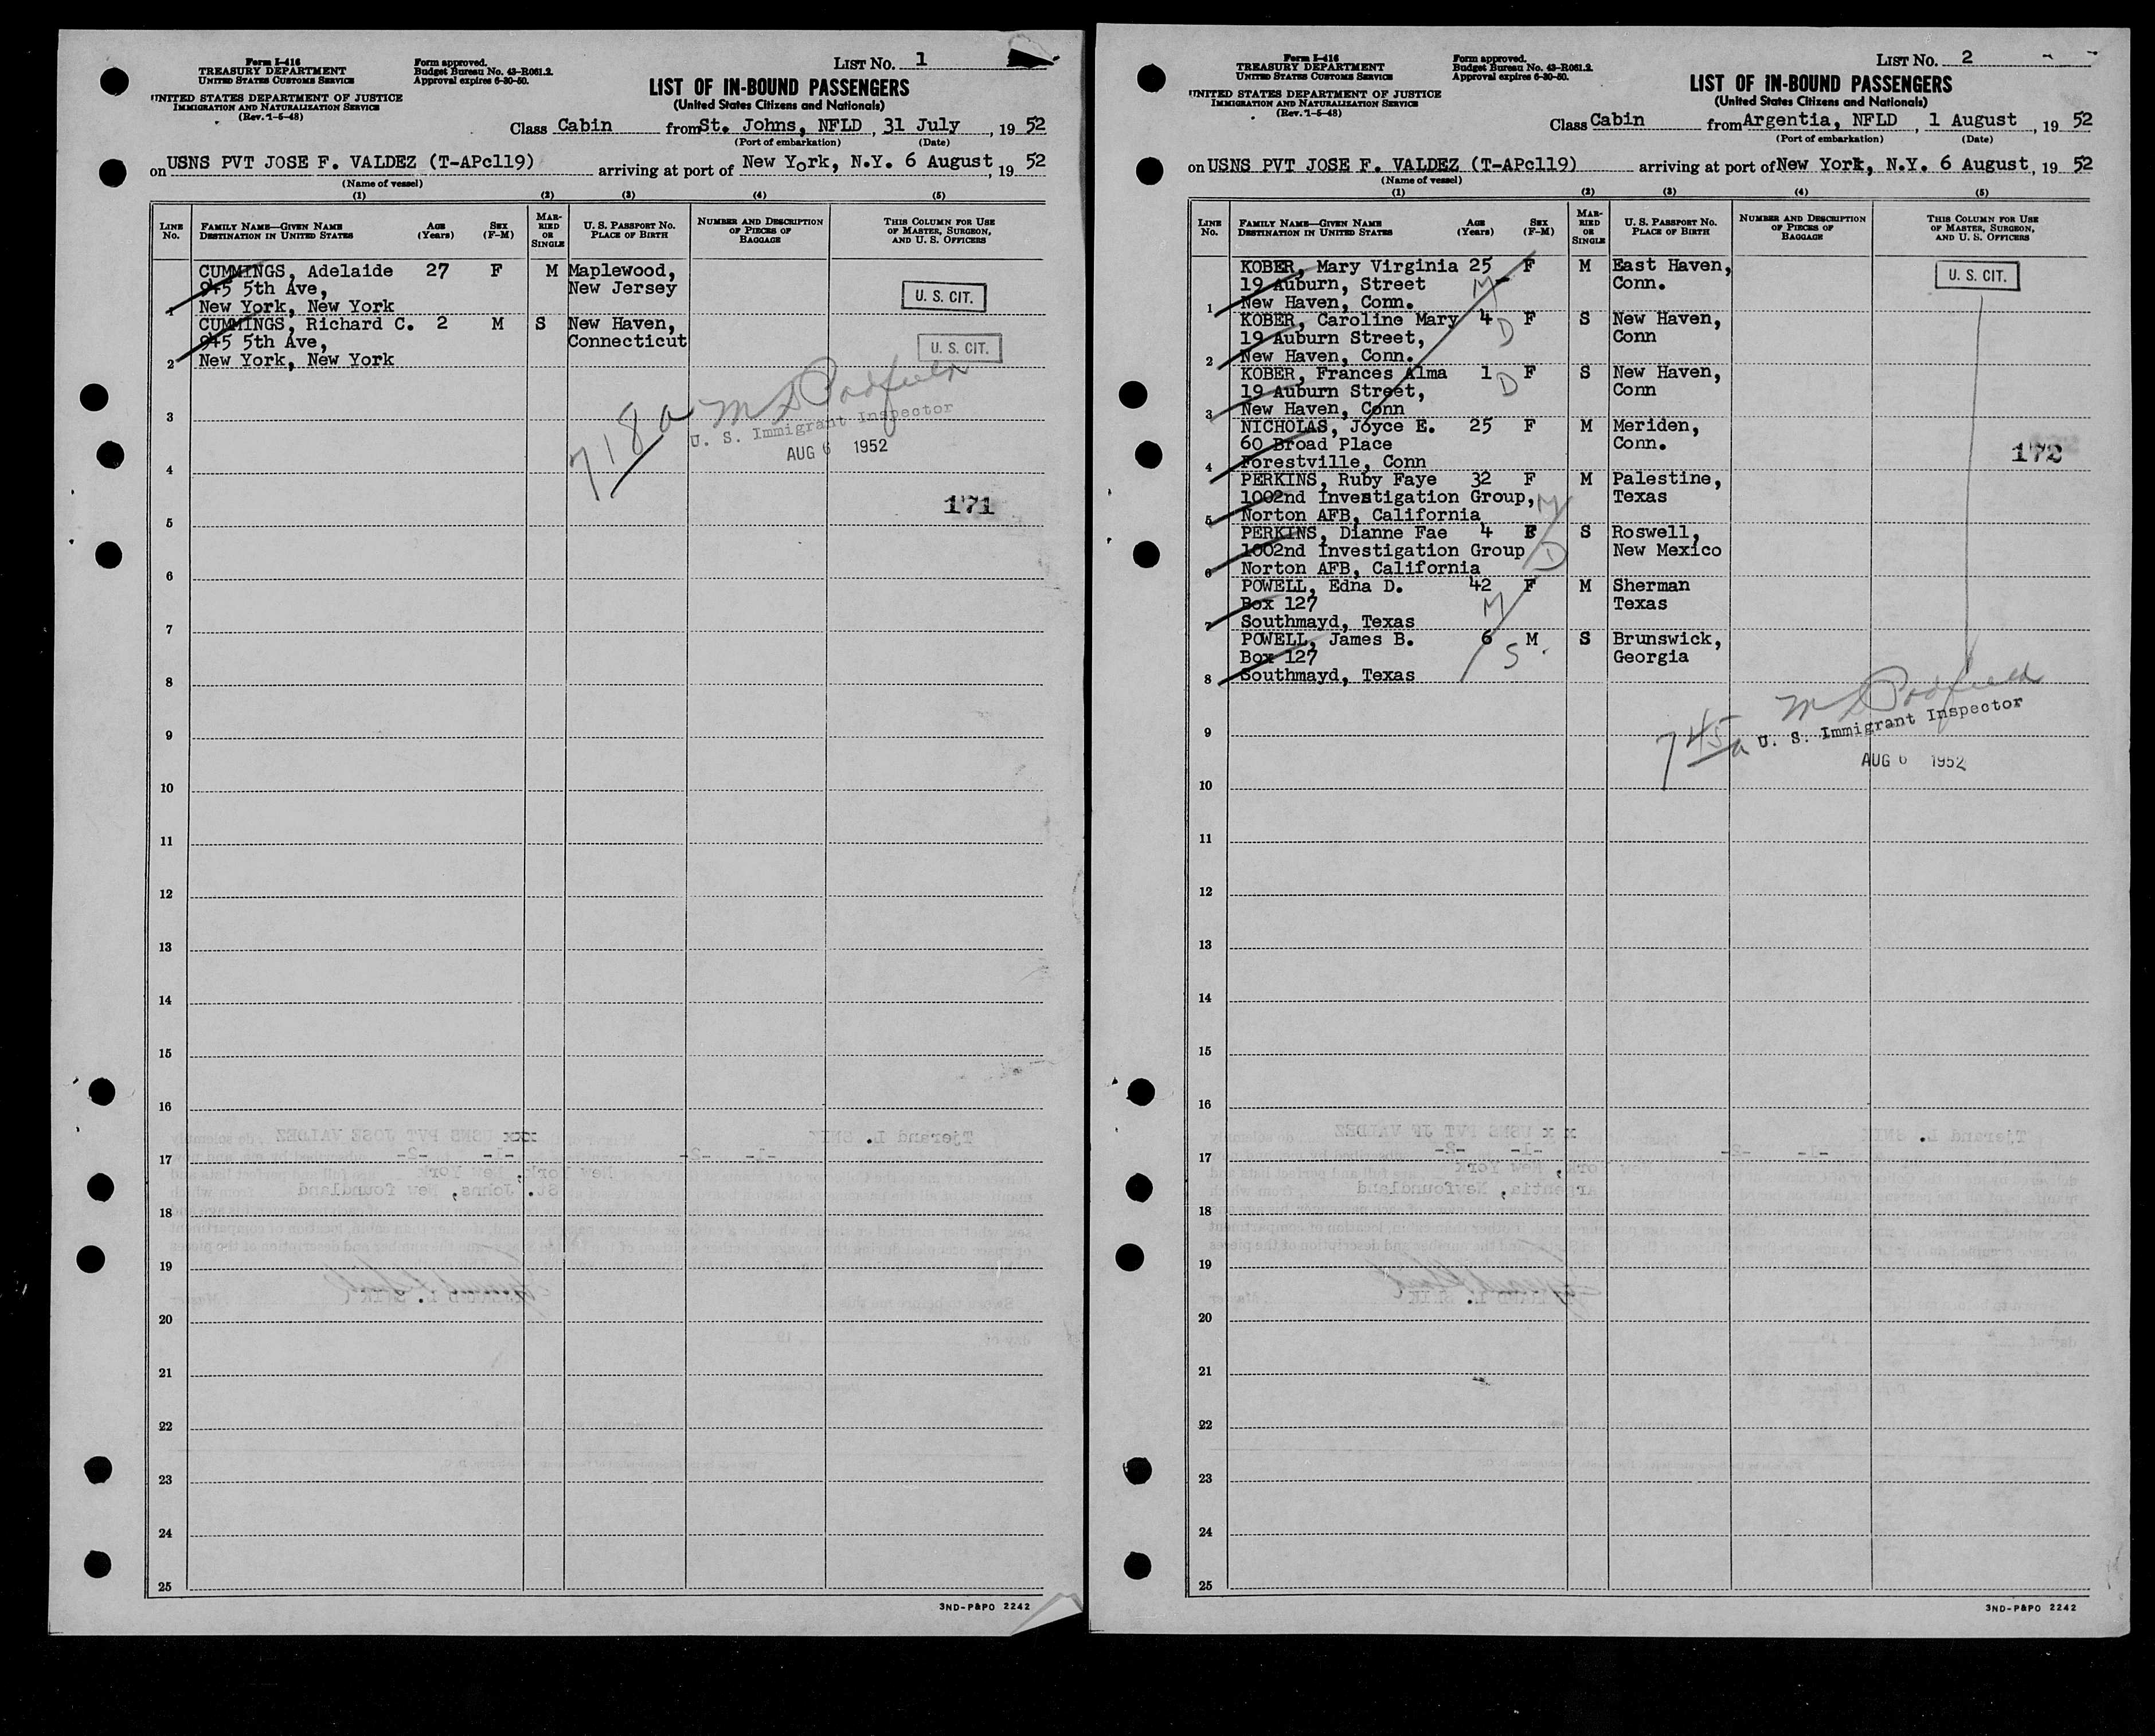 Form I-416
TREASURY DEPARTMENT
UNITED STATES CUSTOMS SERVICE
UNITED STATES DEPARTMENT OF JUSTICE
IMMIGRATION AND NATURALIZATION SERVICE
(Rev. 1-5-48)
Form approved.
Budget Bureau No. 43-R061.2.
Approval expires 6-30-50.
LIST No. 1
LIST OF IN-BOUND PASSENGERS
(United States Citizens and Nationals)
Class Cabin from St. Johns, NFLD, 31 July, 19 52
(Port of embarkation) (Date)
on USNS PVT JOSE F. VALDEZ (T-APc119) arriving at port of New York, N.Y. 6 August, 19 52
(Name of vessel)
(1) (2) (3) (4) (5)
LINE No. FAMILY NAME—GIVEN NAME DESTINATION IN UNITED STATES AGE (Years) SEX (F-M) MARRIED OR SINGLE U. S. PASSPORT No. PLACE OF BIRTH NUMBER AND DESCRIPTION OF PIECES OF BAGGAGE THIS COLUMN FOR USE OF MASTER, SURGEON, AND U. S. OFFICERS
CUMMINGS, Adelaide 27 F M Maplewood,
945 5th Ave, New Jersey
1 New York, New York U. S. CIT.
CUMMINGS, Richard C. 2 M S New Haven,
945 5th Ave, Connecticut U. S. CIT.
2 New York, New York
3
718a
U. S. Immigrant Inspector
AUG 6 1952
4
171
5
6
7
8
9
10
11
12
13
14
15
16
17
18
19
20
21
22
23
24
25
3ND-P&PO 2242
Form I-416
TREASURY DEPARTMENT
UNITED STATES CUSTOMS SERVICE
UNITED STATES DEPARTMENT OF JUSTICE
IMMIGRATION AND NATURALIZATION SERVICE
(Rev. 1-5-48)
Form approved.
Budget Bureau No. 43-R061.2.
Approval expires 6-30-50.
LIST No. 2
LIST OF IN-BOUND PASSENGERS
(United States Citizens and Nationals)
Class Cabin from Argentia, NFLD, 1 August, 19 52
(Port of embarkation) (Date)
on USNS PVT JOSE F. VALDEZ (T-APc119) arriving at port of New York, N.Y. 6 August, 19 52
(Name of vessel)
(1) (2) (3) (4) (5)
LINE No. FAMILY NAME—GIVEN NAME DESTINATION IN UNITED STATES AGE (Years) SEX (F-M) MARRIED OR SINGLE U. S. PASSPORT No. PLACE OF BIRTH NUMBER AND DESCRIPTION OF PIECES OF BAGGAGE THIS COLUMN FOR USE OF MASTER, SURGEON, AND U. S. OFFICERS
KOBER, Mary Virginia 25 F M East Haven, U. S. CIT.
19 Auburn, Street M Conn.
1 New Haven, Conn.
KOBER, Caroline Mary 4 F S New Haven,
19 Auburn Street, D Conn
2 New Haven, Conn.
KOBER, Frances Alma 1 D F S New Haven,
19 Auburn Street, Conn
3 New Haven, Conn
NICHOLAS, Joyce E. 25 F M Meriden,
60 Broad Place Conn.
4 Forestville, Conn 172
PERKINS, Ruby Faye 32 F M Palestine,
1002nd Investigation Group, M Texas
5 Norton AFB, California
PERKINS, Dianne Fae 4 F S Roswell,
1002nd Investigation Group D New Mexico
6 Norton AFB, California
POWELL, Edna D. 42 F M Sherman
Box 127 M Texas
7 Southmayd, Texas
POWELL, James B. 6 M S Brunswick,
Box 127 S Georgia
8 Southmayd, Texas
9
745a
U. S. Immigrant Inspector
AUG 6 1952
10
11
12
13
14
15
16
17
18
19
20
21
22
23
24
25
3ND-P&PO 2242